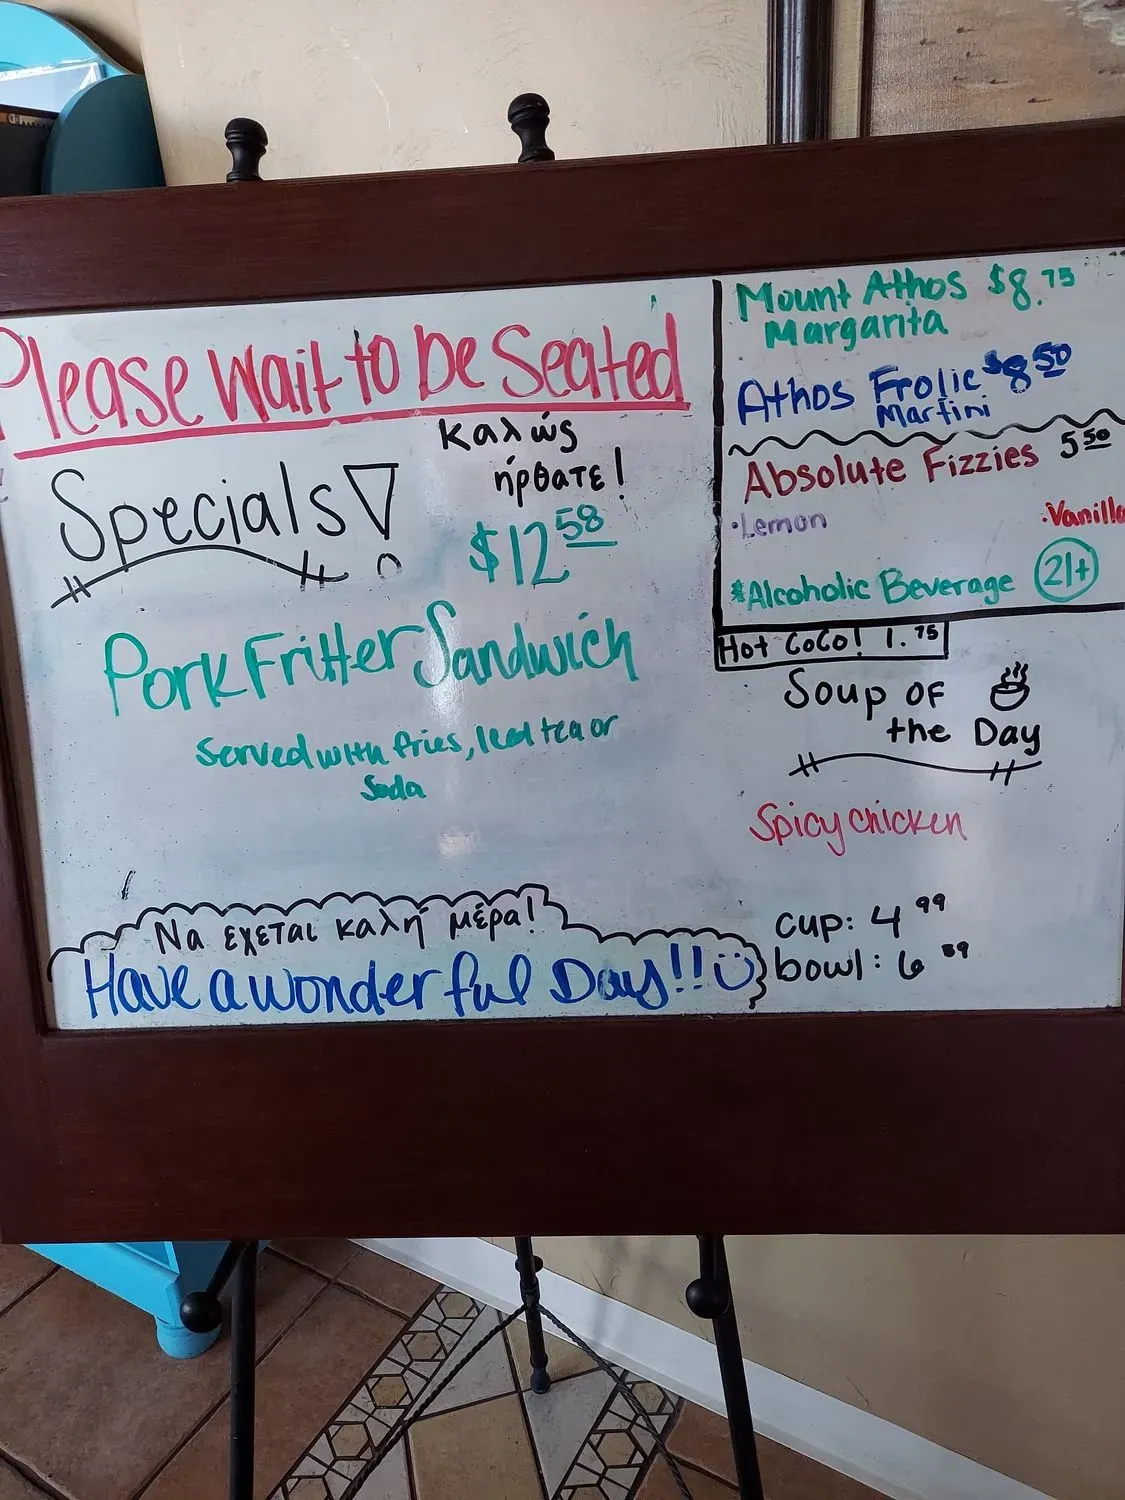 Please Wait to be Seated
Specials!
καλώς
ήρθατε!
$12 58
Pork Fritter Sandwich
Served with fries, Iced tea or
Soda
Να έχεται καλή μέρα!
Have a wonderful Day!!
Mount Athos $8.75
Margarita
Athos Frolic $8 50
Martini
Absolute Fizzies 5 50
·Lemon ·Vanilla
*Alcoholic Beverage 21+
Hot CoCo! 1.75
Soup of
the Day
Spicy chicken
cup: 4 99
bowl: 6